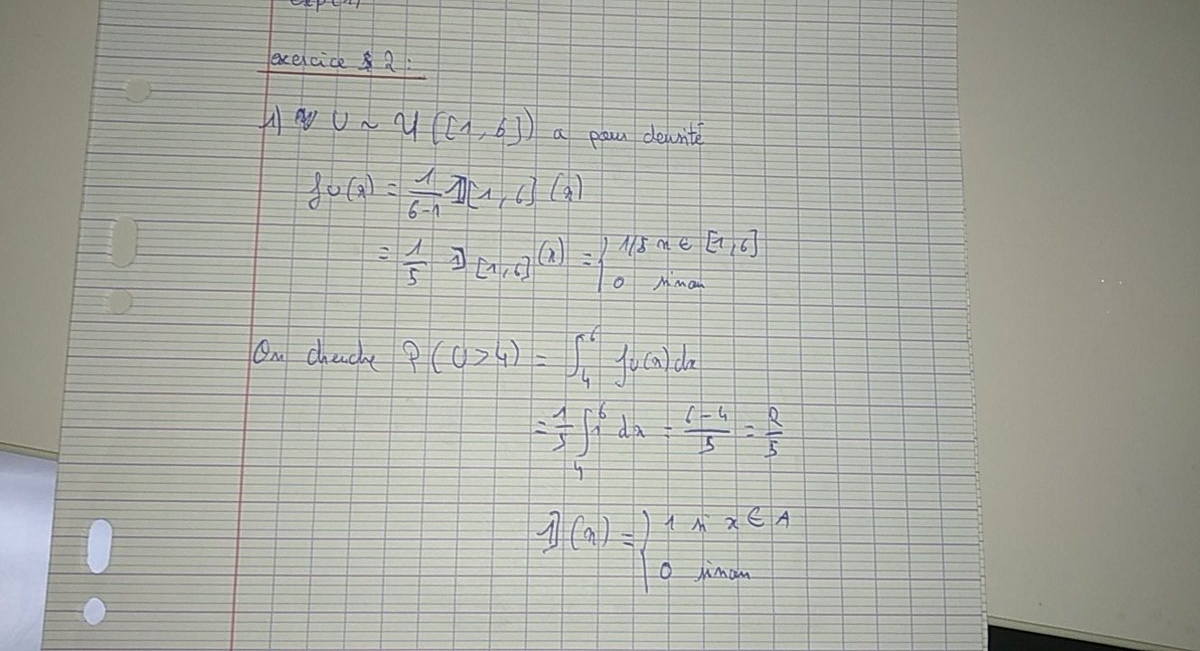 exercice 2 :
1) U ~ U([1, 6]) a pour densité
fU(x) = 1/(6-1) 𝟙[1, 6] (x)
= 1/5 𝟙[1,6](x) = { 1/5 x ∈ [1,6]
0 sinon
On cherche P(U>4) = ∫_4^6 fU(x)dx
= 1/5 ∫_4^6 1 dx = (6-4)/5 = 2/5
𝟙(x) = { 1 si x ∈ A
0 sinon